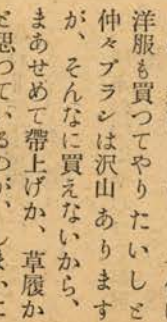 洋服も買つてやりたいしと
仲々プランは沢山あります
が、そんなに買えないから、
まあせめて帶上げか、草履か
と思つて、るのが、しまいに